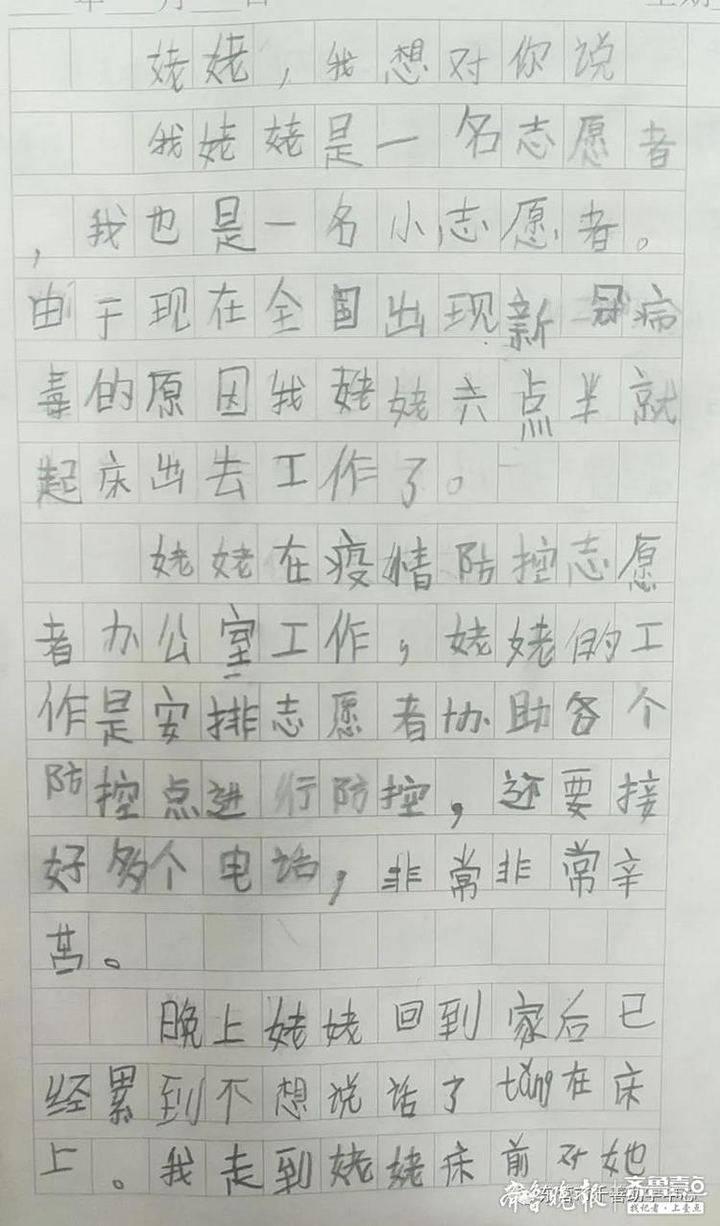 年 月 日
姥姥，我想对你说
我姥姥是一名志愿者
，我也是一名小志愿者。
由于现在全国出现新冠病
毒的原因我姥姥六点半就
起床出去工作了。
姥姥在疫情防控志愿
者办公室工作，姥姥的工
作是安排志愿者协助各个
防控点进行防控，还要接
好多个电话，非常非常辛
苦。
晚上姥姥回到家后已
经累到不想说话了tǎng在床
上。我走到姥姥床前对她
齐鲁晚报 齐鲁壹点
找记者·上壹点